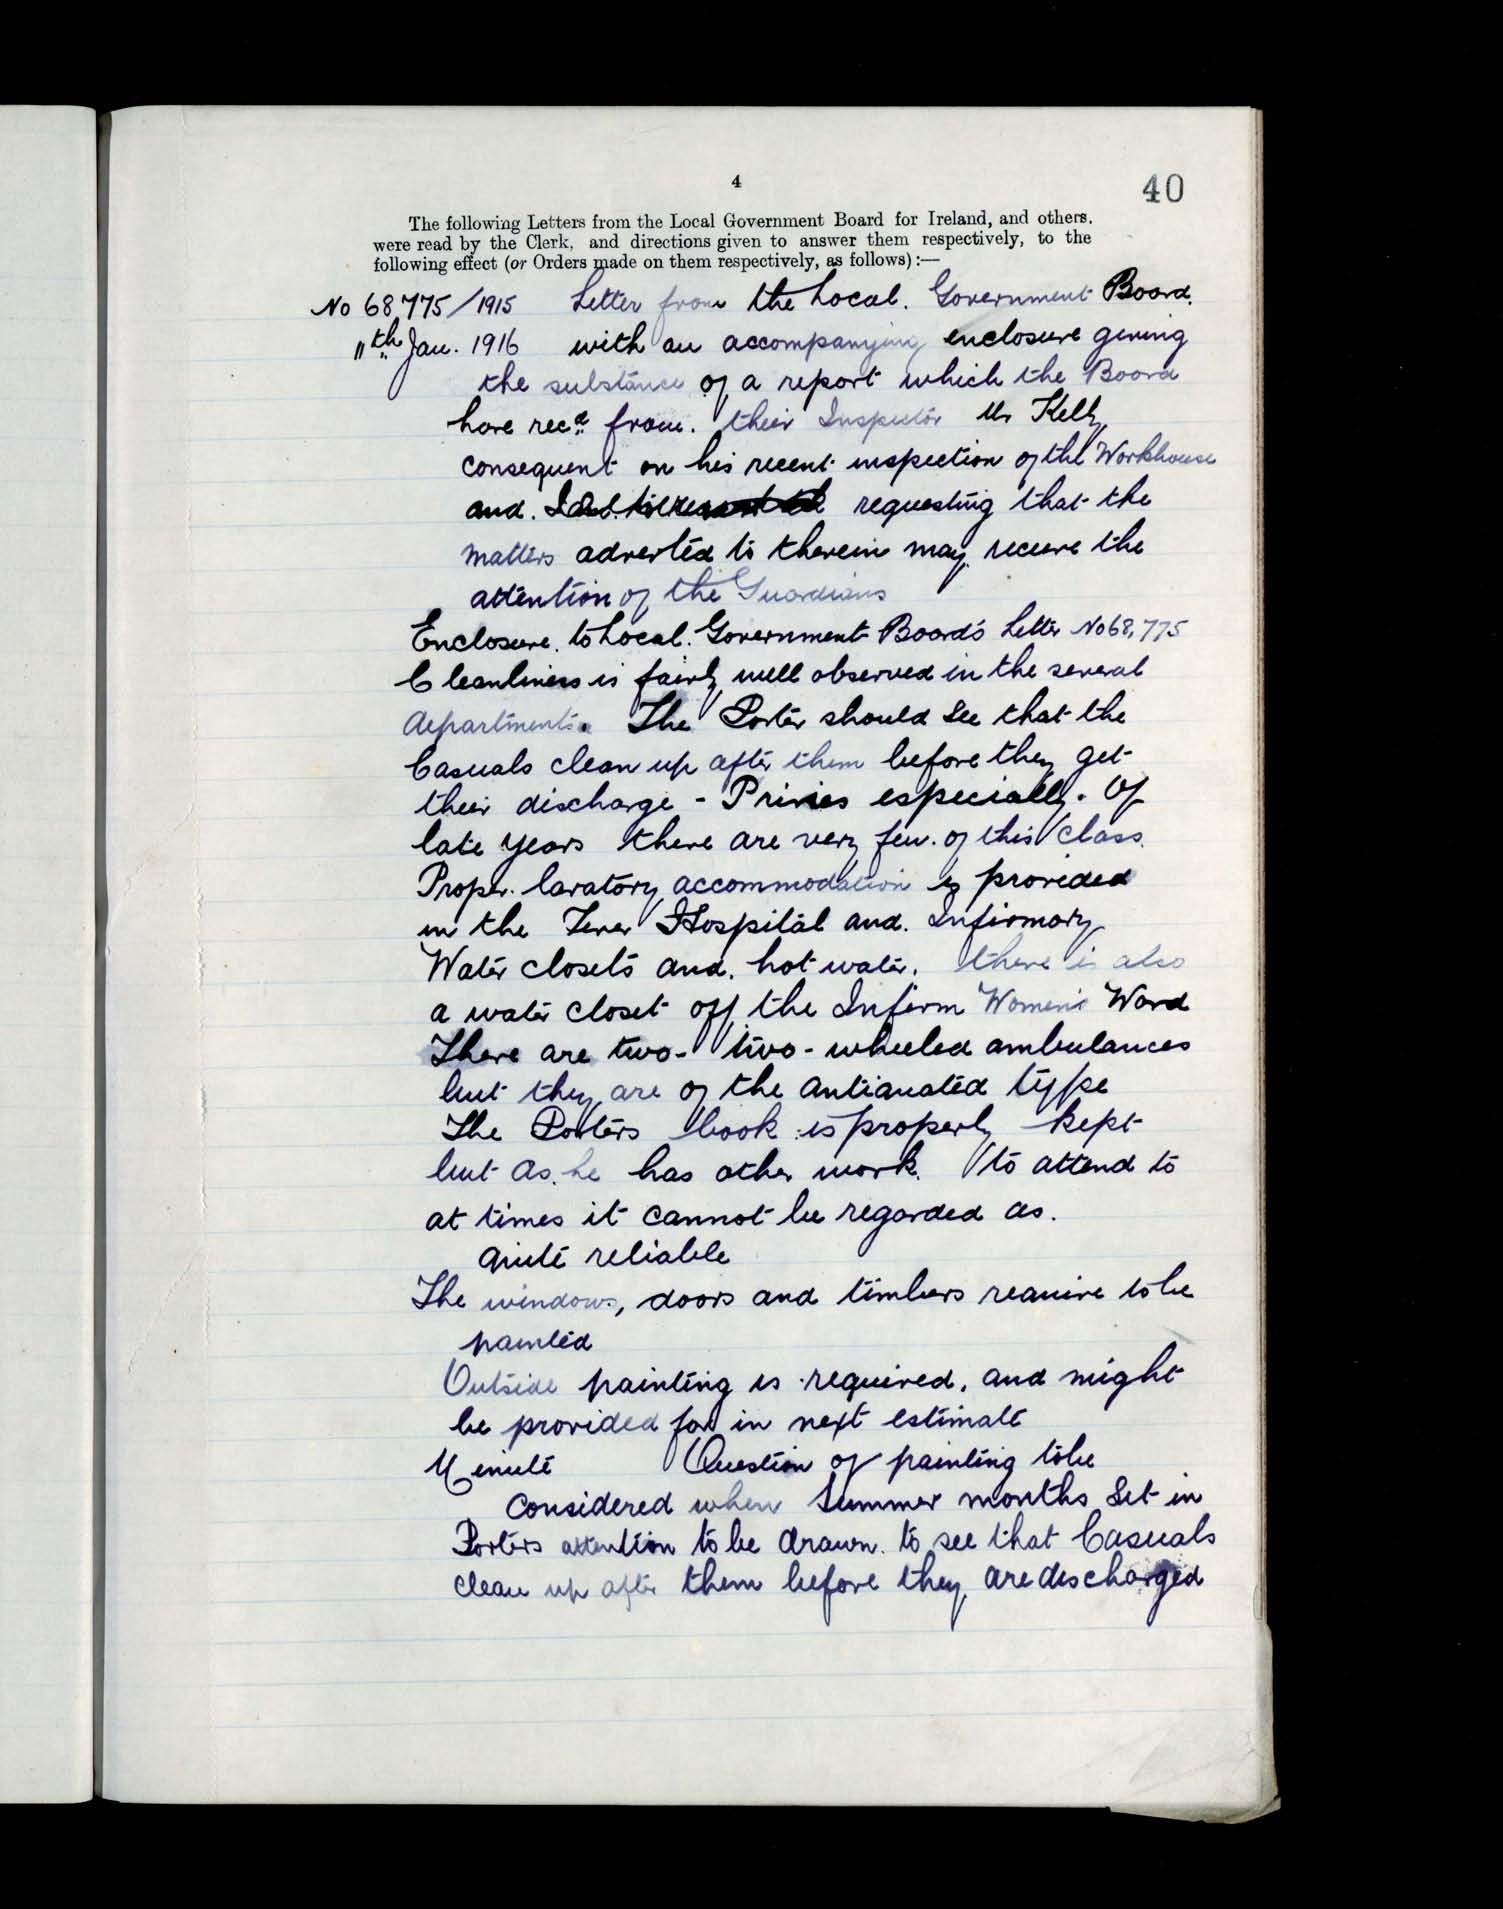 4
40
The following Letters from the Local Government Board for Ireland, and others.
were read by the Clerk, and directions given to answer them respectively, to the
following effect (or Orders made on them respectively, as follows) :—
No 68,775/1915 Letter from the Local. Government Board.
11th Jan. 1916 with an accompanying enclosure giving
the substance of a report which the Board
have recd from. their Inspector Mr Kelly
consequent on his recent inspection of the Workhouse
and. requesting that the
matters adverted to therein may receive the
attention of the Guardians
Enclosure. to Local. Government Board's Letter No 68,775
Cleanliness is fairly well observed in the several
departments. The Porter should see that the
Casuals clean up after them before they get
their discharge - Privies especially. Of
late years there are very few. of this class.
Proper. lavatory accommodation is provided
in the Fever Hospital and. Infirmary
Water closets and. hot water. there is also
a water closet off the Infirm Women's Ward
There are two - two - wheeled ambulances
but they are of the antiquated type
The Porters book is properly kept
but as. he has other work. to attend to
at times it cannot be regarded as.
quite reliable
The windows, doors and timbers require to be
painted
Outside painting is required, and might
be provided for in next estimate
Minute Question of painting to be
considered when Summer months Set in
Porters attention to be drawn. to see that Casuals
clean up after them before they are discharged